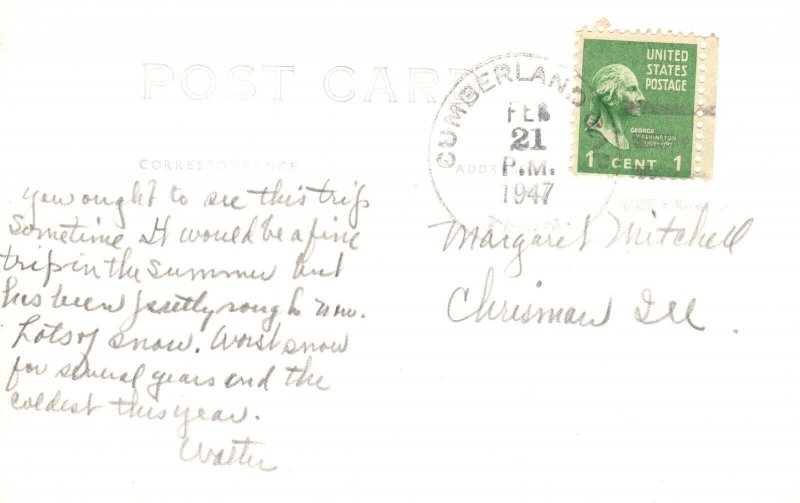 POST CARD
CORRESPONDENCE
ADDRESS
CUMBERLAND
FEB
21
P.M.
1947
UNITED
STATES
POSTAGE
GEORGE
WASHINGTON
1 CENT 1
You ought to see this trip
Sometime It would be a fine
trip in the summer but
has been pretty rough now.
Lots of snow. Worst snow
for several years and the
coldest this year.
Walter
Margaret Mitchell
Chrisman Ill.